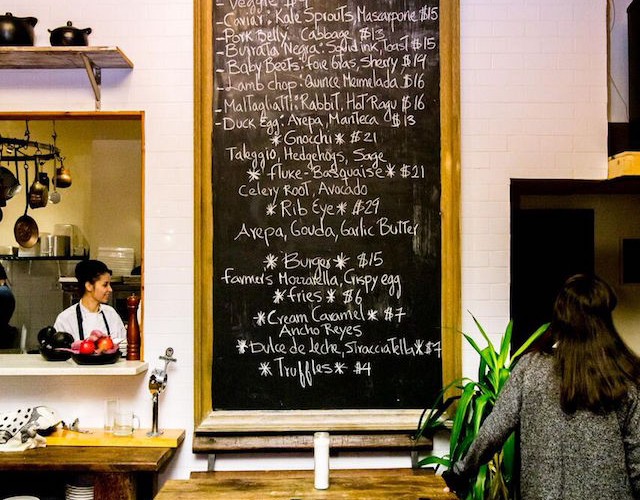 - Veggie $9
- Caviar: Kale Sprouts, Mascarpone $15
- Pork Belly: Cabbage $13
- Burrata Negra: Squid ink, Toast $15
- Baby Beets: foie Gras, Sherry $14
- Lamb chop: Quince Mermelada $16
- Maltagliatti: Rabbit, Hot Ragu $16
- Duck Egg: Arepa, Manteca $13
* Gnocchi * $21
Taleggio, Hedgehogs, Sage
* Fluke-Basquaise * $21
Celery Root, Avocado
* Rib Eye * $29
Arepa, Gouda, Garlic Butter
* Burger * $15
farmer's Mozzarella, Crispy egg
* fries * $6
* Cream Caramel * $7
Ancho Reyes
* Dulce de Leche, Stracciatella * $7
* Truffles * $4